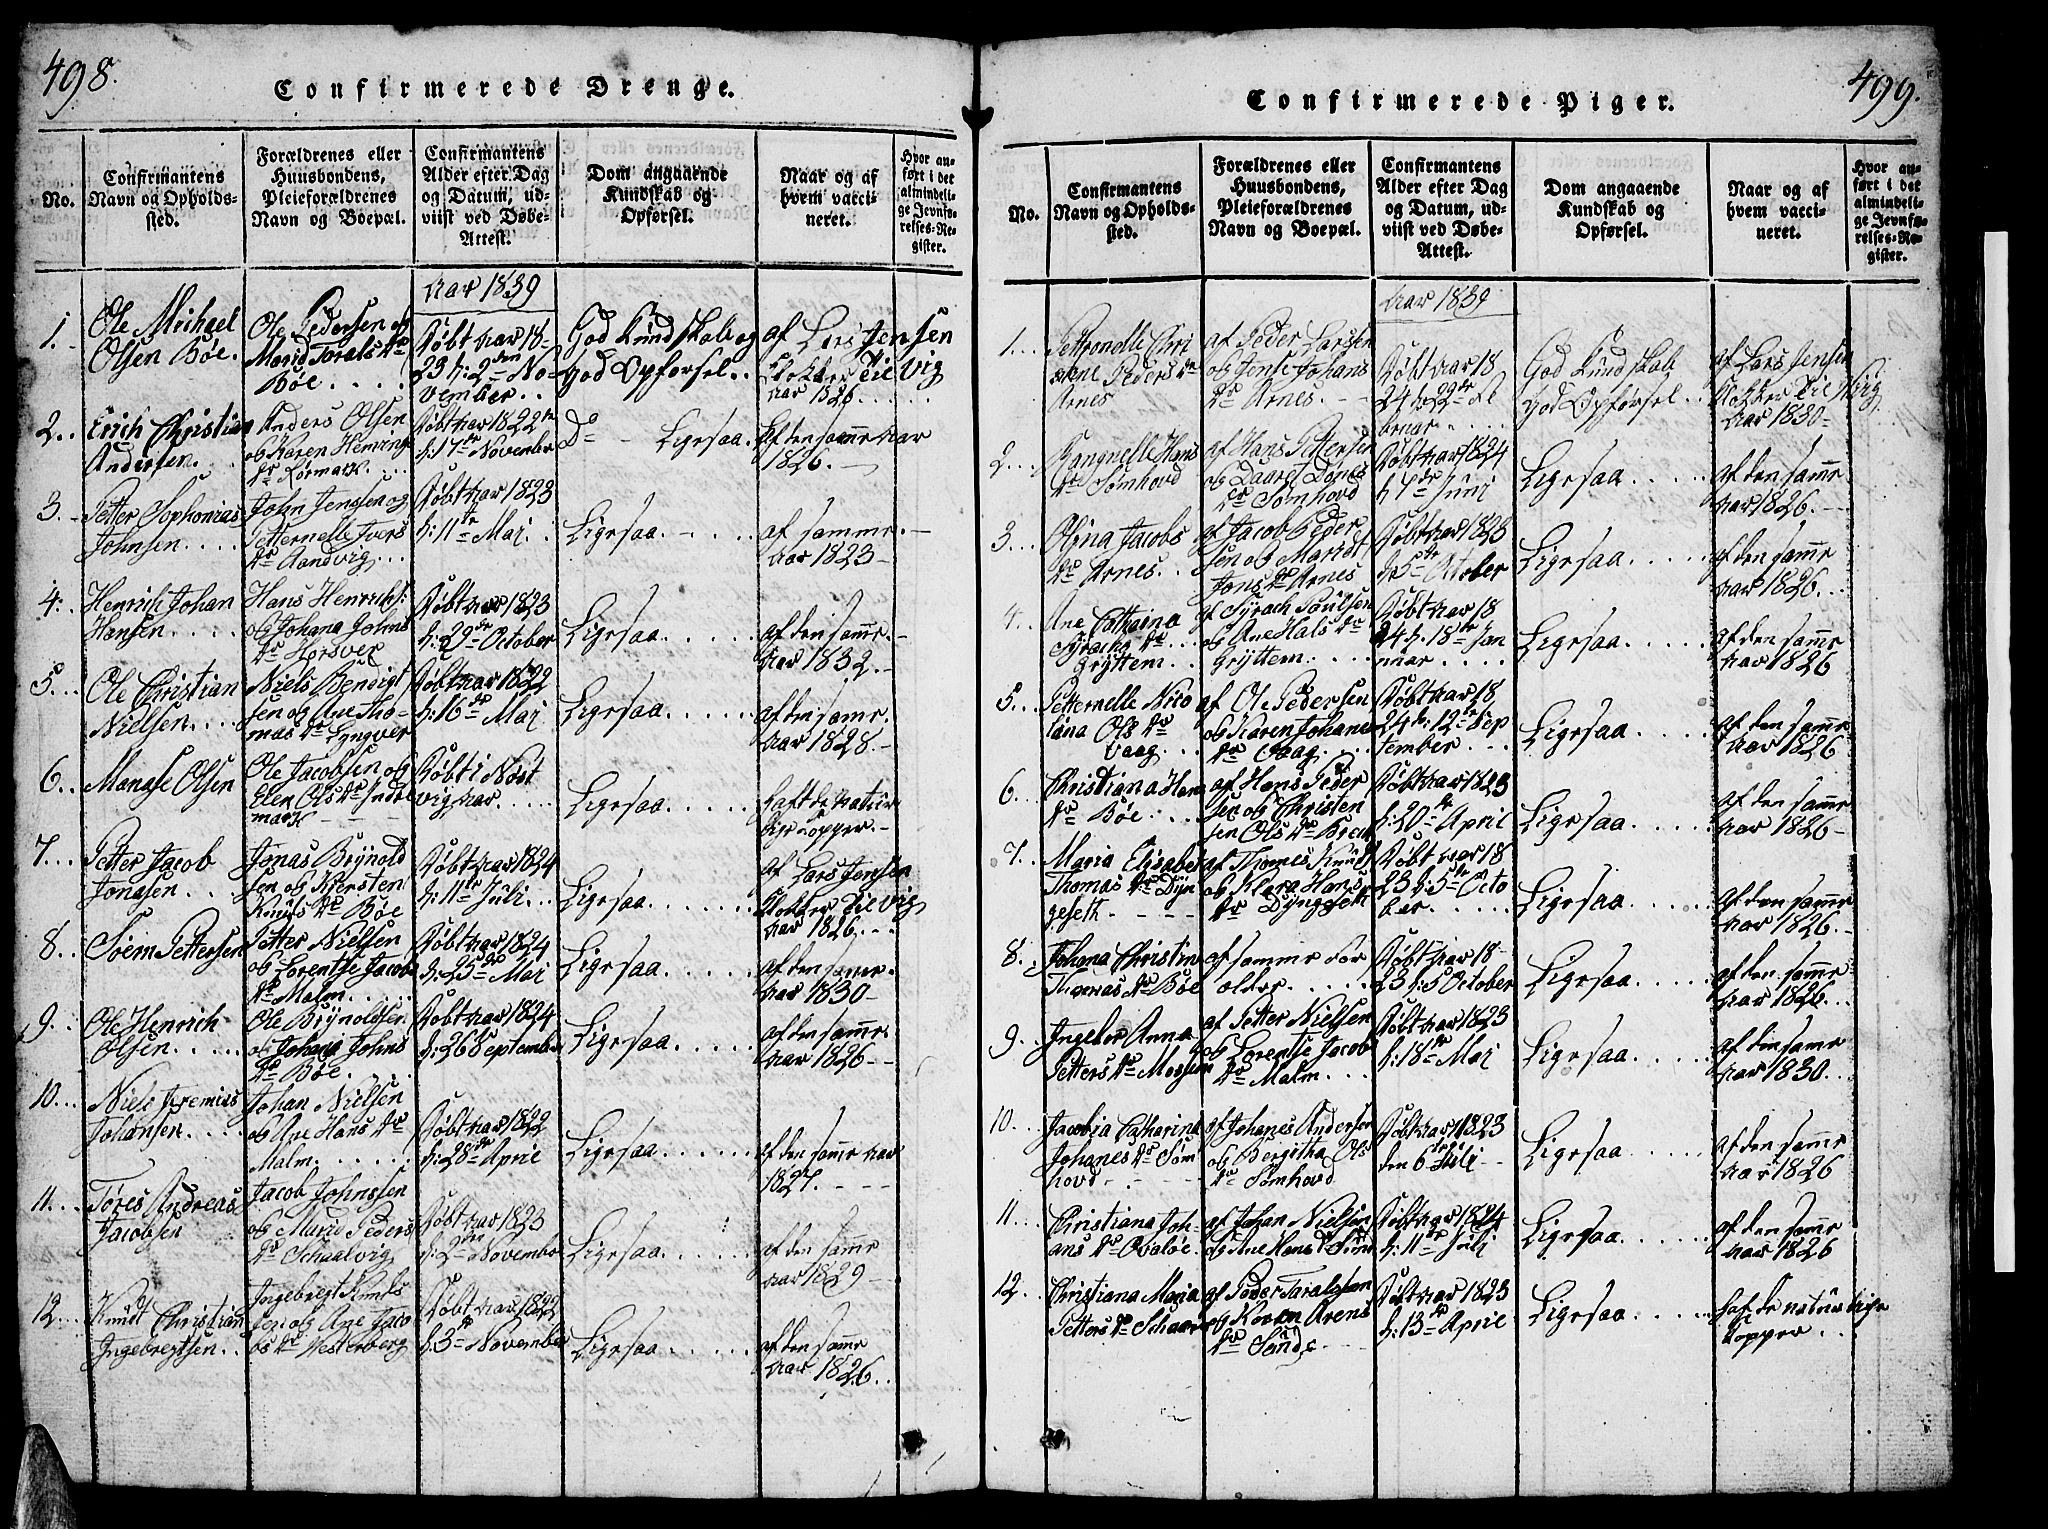 498.
Confirmerede Drenge.
No.
Confirmantens
Navn og Opholds-
sted.
Forældrenes eller
Huusbondens,
Pleieforældrenes
Navn og Boepæl.
Confirmantens
Alder efter Dag
og Datum, ud-
viist ved Døbe-
Attest.
Dom angaaende
Kundskab og
Opførsel.
Naar og af
hvem vacci-
neret.
Hvor an-
ført i det
almindeli-
ge Jevnfø-
relses-Re-
gister.
Aar 1839
1.
Ole Michael
Olsen Bøe.
Ole Pedersen og
Marid Torals Dr
Bøe
Døbt Aar 18-
23 d: 2den No-
vember
God Kundskab og
God Opførsel
af Lars Jensen
Klokker Eilvig
Aar 1826
2.
Erich Christian
Andersen.
Anders Olsen
og Karen Henrings
Dr Rørmark
Døbt Aar 1822
d: 17de November
Do - Ligesaa.
Af den samme Aar
1826.
3.
Petter Sophonias
Johnsen
John Jensen og
Petternelle Ivers
Dr Aandvig
Døbt Aar 1823
d: 11te Maj
Ligesaa.
af samme
Aar 1823
4.
Henrich Johan
Hansen
Hans Henrichs:
og Johana Johns
Dr Horsver
Døbt Aar 1823
d: 29de October
Ligesaa
af den samme
Aar 1832.
5.
Ole Christian
Nielsen
Niels Bendigt
sen og Ane Tho-
mas Dr Lyngver
Døbt Aar 1822
d: 16de Maj
Ligesaa
af den samme
Aar 1828.
6.
Manase Olsen
Ole Jacobsen og
Elen Ols Dr Indre
mark
Døbt i Nost
vig Aar
Ligesaa
haft de natur
lige Copper.
7.
Petter Jacob
Jonasen
Jonas Brynold
sen og Kiersten
Knuts Dr Bøe
Døbt Aar 1824
d: 11te Juli
Ligesaa
af Lars Jensen
Klokker Eilvig
Aar 1826
8.
Søern Pettersen
Petter Nielsen
og Lorentse Jacobs
Dr Malm.
Døbt Aar 1824
d: 25de Maj
Ligesaa
af den samme
Aar 1830
9.
Ole Henrich
Olsen
Ole Brynoldsen
og Johana Johns
Dr Bøe.
Døbt Aar 1824
d: 26 September
Ligesaa
af den samme
Aar 1826
10.
Niels Jeremias
Johansen
Johan Nielsen
og Ane Hans Dr
Malm.
Døbt Aar 1822
d: 28de April
Ligesaa
af den samme Aar
1827.
11.
Tøres Andreas
Jacobsen
Jacob Johnssen
og Marid Peders
Dr Schaalvig
Døbt Aar 1823
d: 2den Novembe
Ligesaa
af den samme
Aar 1829
12.
Knudt Christian
Ingebregtsen
Ingebregt Knuts
sen og Ane Jaco
bs Dr Vesterberg
Døbt Aar 1822
d: 3de November
Ligesaa
af den samme
Aar 1826
499.
Confirmerede Piger.
No.
Confirmantens
Navn og Opholds-
sted.
Forældrenes eller
Huusbondens,
Pleieforældrenes
Navn og Boepæl.
Confirmantens
Alder efter Dag
og Datum, ud-
viist ved Døbe-
Attest.
Dom angaaende
Kundskab og
Opførsel.
Naar og af
hvem vacci-
neret.
Hvor an-
ført i det
almindeli-
ge Jevnfø-
relses-Re-
gister.
Aar 1839
1.
Petronelle Chri
stine Peders Dr
Arnes
af Peder Larsen
og Jense Johans
Dr Arnes.
Døbt Aar 18
24 d: 22de Fe
bruar
God Kundskab
God Opførsel
af Lars Jensen
Klokker Eilvig
Aar 1830
2.
Rangnelle Hans
Dr Sømhovd
af Hans Pettersen
og Daaret Dønes
Dr Sømhovd
Døbt Aar 1824
d 7de Juni
Ligesaa
af den samme
Aar 1826.
3.
Olsina Jacobs
Dr Arnes.
af Jacob Peder
sen og Maridt
Jons Dr Arnes
Døbt Aar 1823
d: 5te October
Ligesaa
af den samme
Aar 1826
4.
Ane Catharina
Syrachs Dr
Gryttem
af Syrach Poulsen
og Ane Hals Dr
Gryttem
Døbt Aar 18
24 d. 18te Jan
nuar
Ligesaa
af den samme
Aar 1826
5.
Petternelle Nico
liana Ols Dr
Vaag
af Ole Pedersen
og Karen Johans
Dr Vaag
Døbt Aar 18
24 d: 12te Sep
tember
Ligesaa
af den samme
Aar 1826
6.
Christiana Hans
Dr Bøe
af Hans Peder
sen og Christen
sen Ols Dr
Døbt Aar 1823
d: 20de April
Ligesaa
af den samme
Aar 1826
7.
Maria Elisabet
Thomas Dr Dyn
geseth
af Thomes Knudt
og Klara Hans
Dr Dyngeseth
Døbt Aar 18
23 d: 5te Octo
ber
Ligesaa
af den samme
Aar 1826.
8.
Johana Christin
Thomas Dr Bøe
af samme For
ælder
Døbt Aar 18-
23 d: 5 October
Ligesaa
af den samme
Aar 1826
9.
Ingebor Anna
Petters Dr
af Petter Nielsen
og Lorentse Jacobs
Dr Malm
Døbt Aar 1823
d: 18de Maj
Ligesaa
af den samme
Aar 1830
10.
Jacobia Catharina
Johanes Dr Søm
hovd
af Johanes Andersen
og Bergitha Ols
Dr Sømhovd
Døbt Aar 1823
den 6te Juli
Ligesaa
af den samme
Aar 1826
11.
Christiana Joh-
ans Dr Qvaløe
af Johan Nielsen
og Ane Hans Dr
Døbt Aar 1824
d: 11te Juli
Ligesaa
af den samme
Aar 1826
12.
Christiana Maria
Petters Dr
af Peder Toralssen
og Karen Arens
Dr Sund
Døbt Aar 1823
d: 13de April
Ligesaa
haf de naturlige
Copper